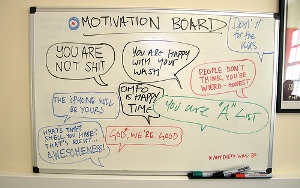 MOTIVATION BOARD
DON'T
for the
KIDS
YOU ARE
NOT SHIT
YOU ARE HAPPY
WITH YOUR
WASH
PEOPLE DON'T
THINK YOU'RE
WEIRD - HONEST
THE IPHONE WILL
BE YOURS
OMFG
IS HAPPY
TIME
YOU are "A" LIST
WHATS THAT
SMELL YOU HAVE?
THAT'S RIGHT...
AWESOMENESS!
GOD, WE'RE GOOD